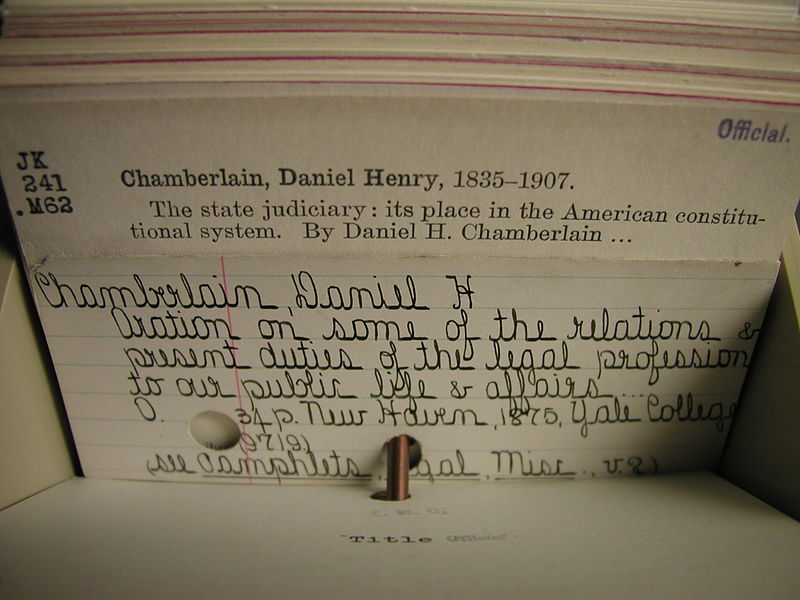 Official.
JK
241
.M62
Chamberlain, Daniel Henry, 1835–1907.
The state judiciary: its place in the American constitu-
tional system. By Daniel H. Chamberlain ...
Chamberlain, Daniel H
Oration on some of the relations &
present duties of the legal profession
to our public life & affairs ...
O. 34 p. New Haven, 1875, Yale College
9719)
(see Pamphlets, Legal, Misc., v.2)
Title